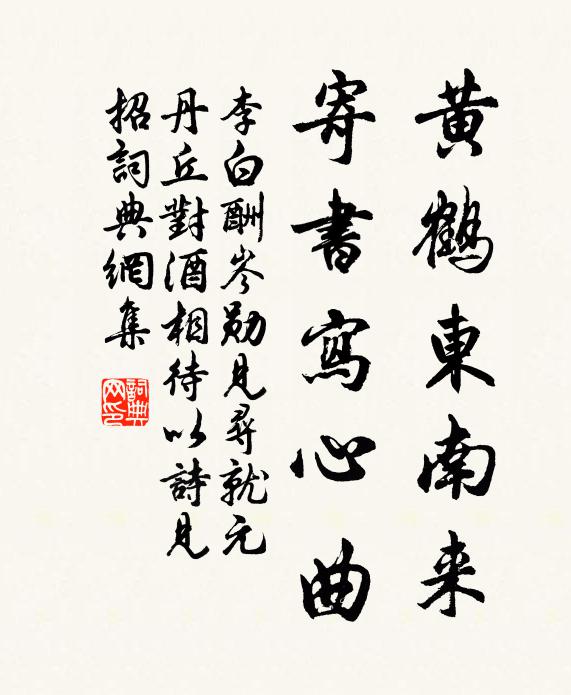 黃鶴東南来
寄書寫心曲
李白酬岑勋見尋就元
丹丘對酒相待以詩見
招詞典網集
詞典网印